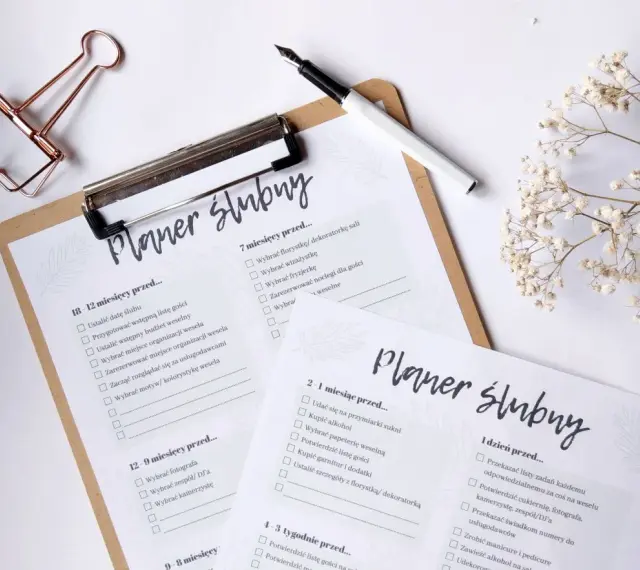 Planer Ślubny
18 - 12 miesięcy przed...
Ustalić datę ślubu
Przygotować wstępną listę gości
Ustalić wstępny budżet weselny
Wybrać miejsce organizacji wesela
Zarezerwować miejsce organizacji wesela
Zacząć rozglądać się za usługodawcami
Wybrać motyw/ kolorystykę wesela
12 - 9 miesięcy przed...
Wybrać fotografa
Wybrać zespół/ DJ'a
Wybrać kamerzystę
9 - 8 miesięcy
7 miesięcy przed...
Wybrać florystkę/ dekoratorkę sali
Wybrać wizażystkę
Wybrać fryzjerkę
Zarezerwować noclegi dla gości
Planer Ślubny
2 - 1 miesiąc przed...
Udać się na przymiarki sukni
Kupić alkohol
Wybrać papeterię weselną
Potwierdzić listę gości
Kupić garnitur i dodatki
Ustalić szczegóły z florystką/ dekoratorką
4 - 3 tygodnie przed...
Potwierdzić listę gości na
1 dzień przed...
Przekazać listy zadań każdemu
odpowiedzialnemu za coś na weselu
Potwierdzić cukiernię, fotografa,
kamerzystę, zespół/DJ'a
Przekazać świadkom numery do
usługodawców
Zrobić manicure i pedicure
Zawieść alkohol na